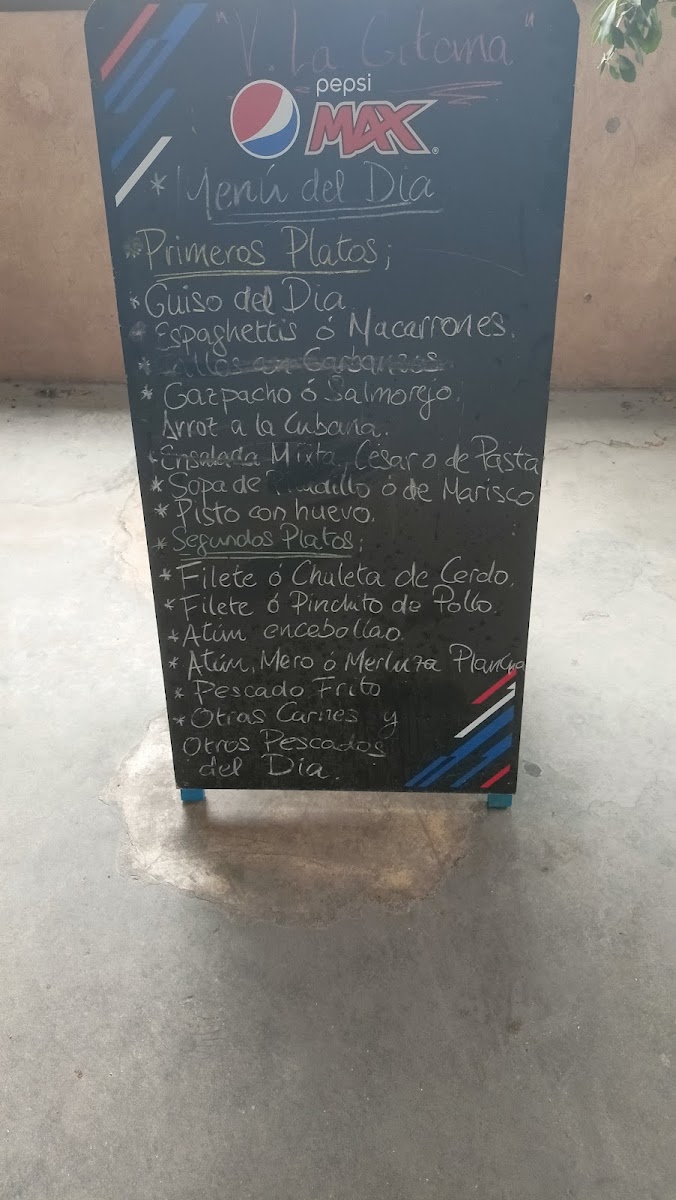 "V. La Gitana"
pepsi
MAX®
* Menú del Dia
* Primeros Platos;
* Guiso del Dia
* Espaghettis ó Macarrones.
* Callos con Garbanzos
* Gazpacho ó Salmorejo.
Arroz a la Cubana.
* Ensalada Mixta, César o de Pasta
* Sopa de Picadillo ó de Marisco
* Pisto con huevo.
* Segundos Platos;
* Filete ó Chuleta de Cerdo.
* Filete ó Pinchito de Pollo.
* Atún encebollao.
* Atún, Mero ó Merluza Plancha
* Pescado Frito
* Otras Carnes y
Otros Pescados
del Dia.